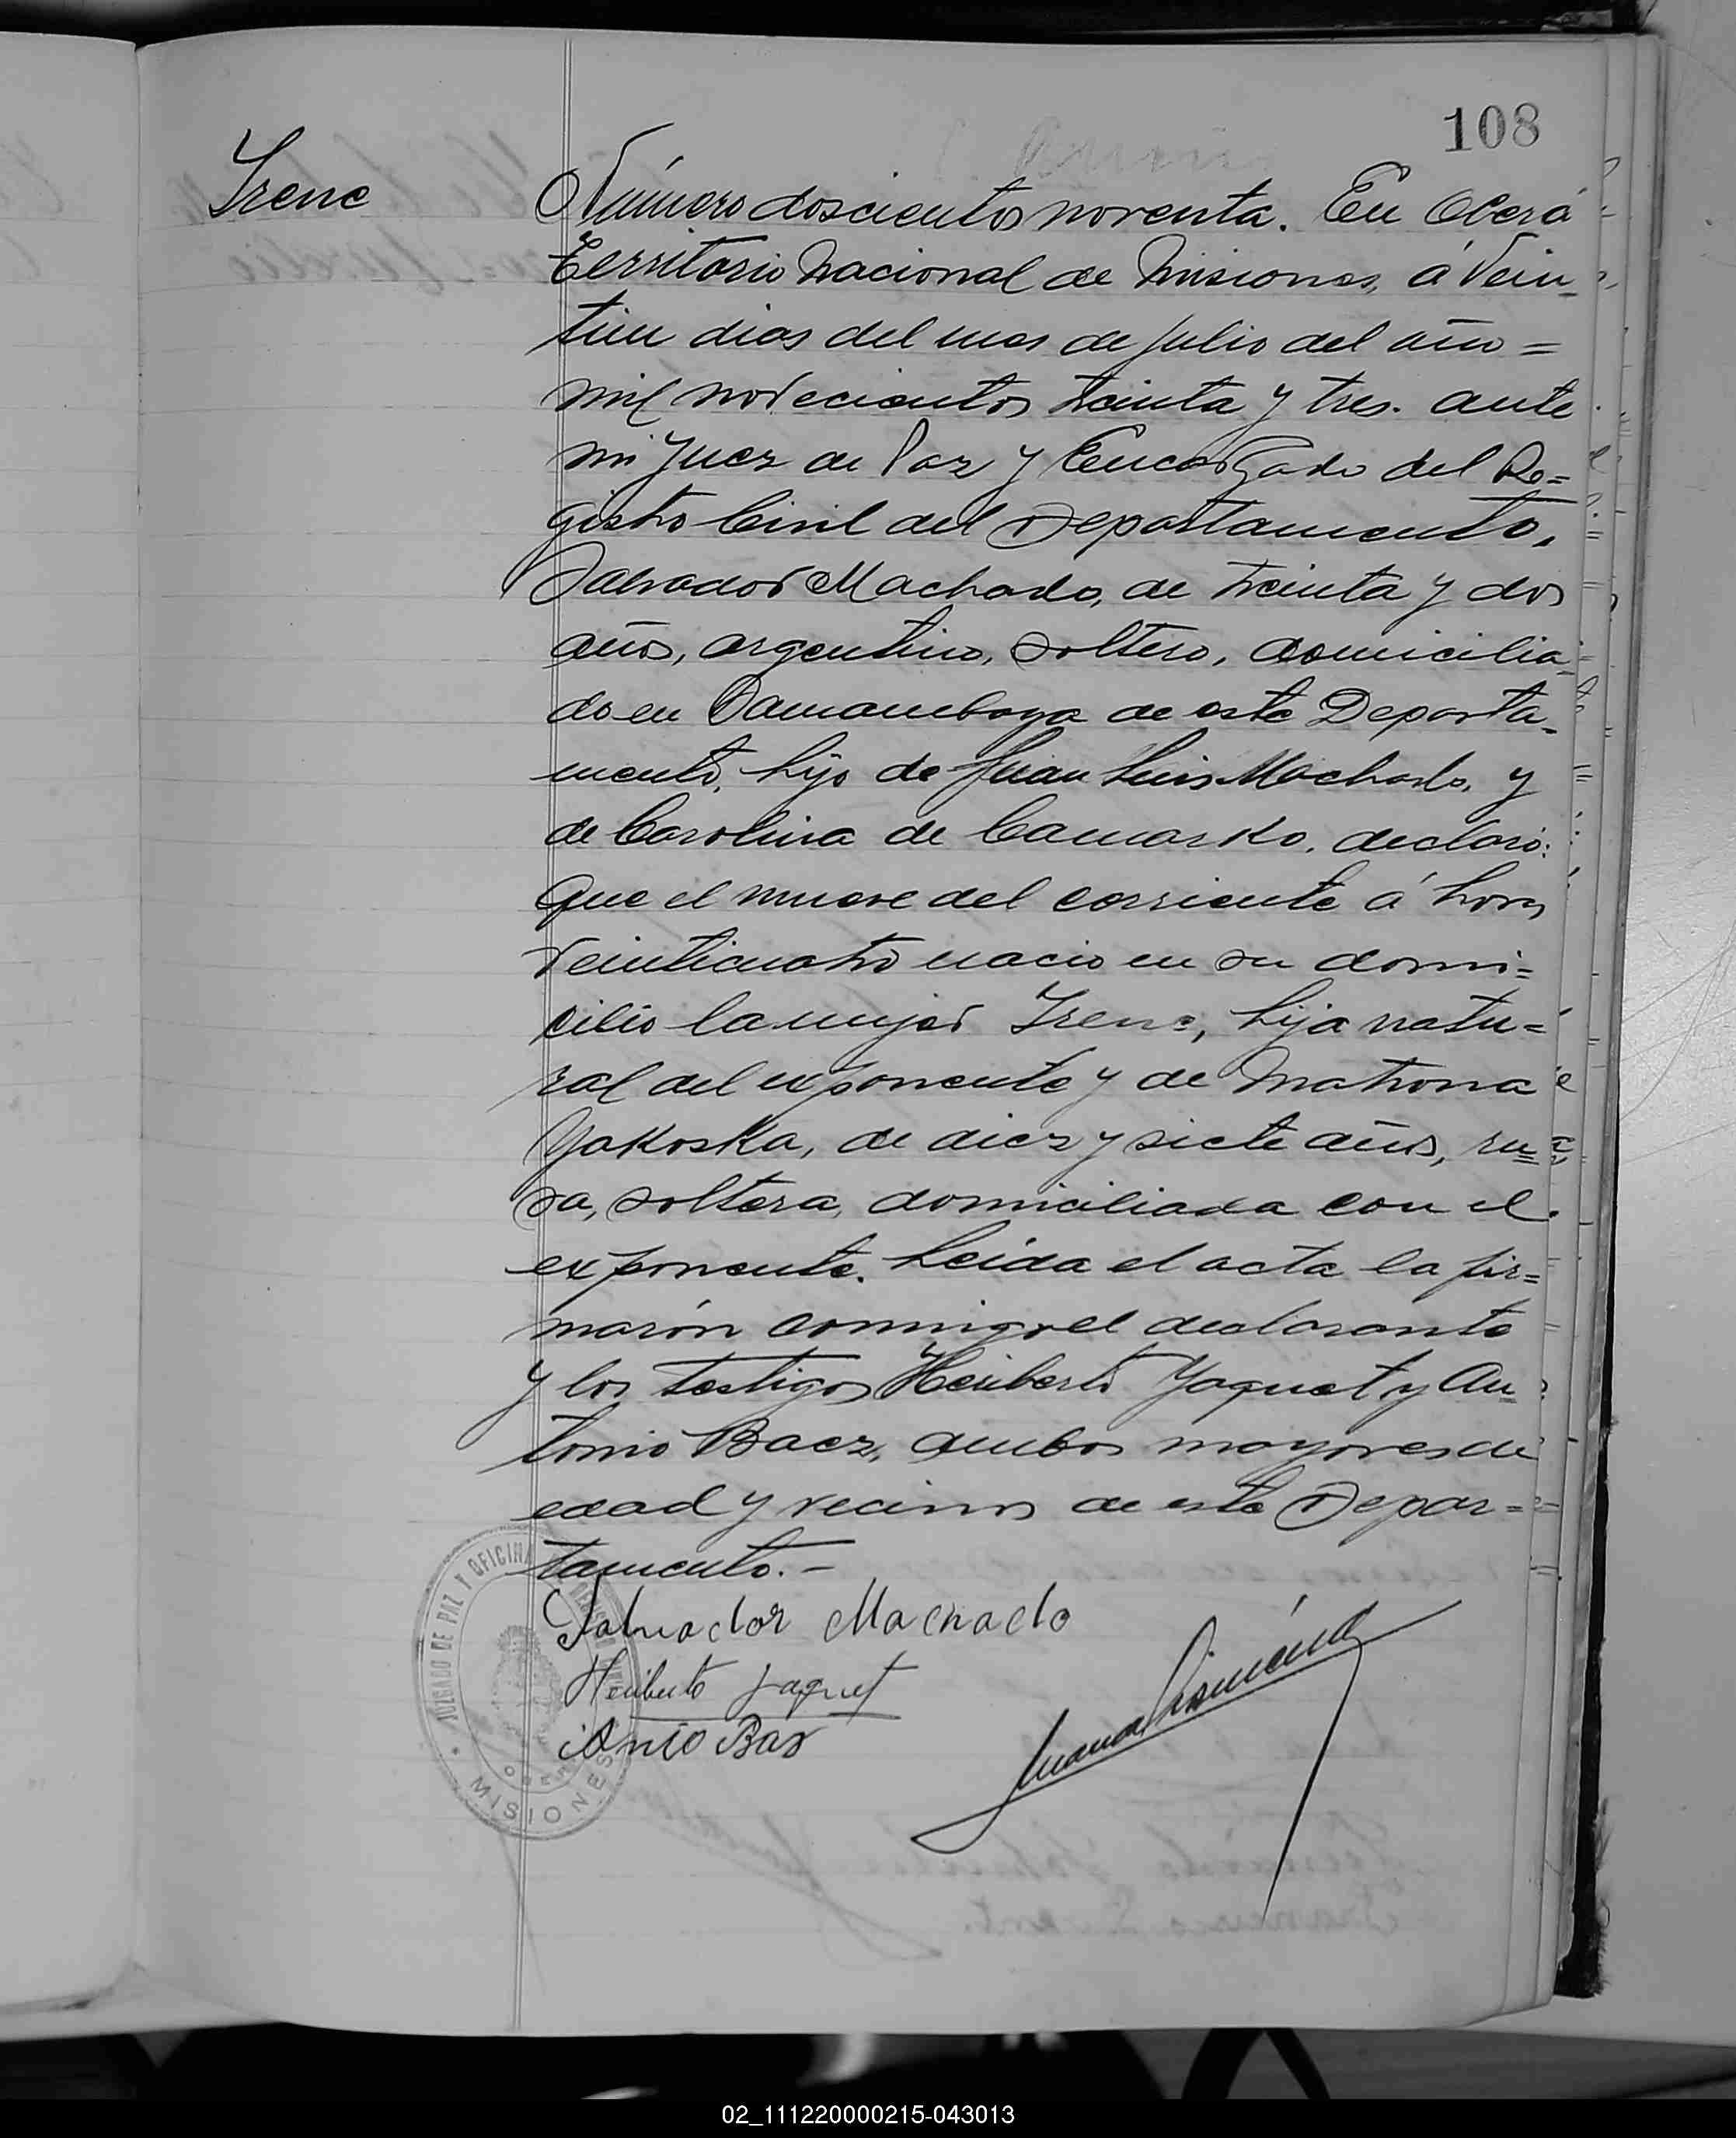 108
Irene
Número doscientos noventa. En Oberá
Territorio Nacional de Misiones, á Vein-
tiun dias del mes de Julio del año =
mil novecientos treinta y tres. ante
mi Juez de Paz y Encargado del Re=
gistro Civil del Departamento,
Salvador Machado, de treinta y dos
años, argentino, soltero, domicilia-
do en de este Departa-
mento, hijo de Juan Luis Machado, y
de Carolina de Camarko, declaró:
Que el nueve del corriente á horas
Veinticuatro nacio en su domi=
cilio la mujer Irene, hija natu=
ral del exponente y de Matrona
Yakoska, de diez y siete años, ru=
sa, soltera, domiciliada con el
exponente. Leida el acta la fir=
marón conmigo el declarante
y los testigos Heriberto Yaquet y An-
tonio Baez, ambos mayores de
edad y vecinos de este Depar=
tamento.-
Salvador Machado
Heriberto Jaquet
Anto Baz
JUZGADO DE PAZ Y OFICINA
MISIONES
02_111220000215-043013